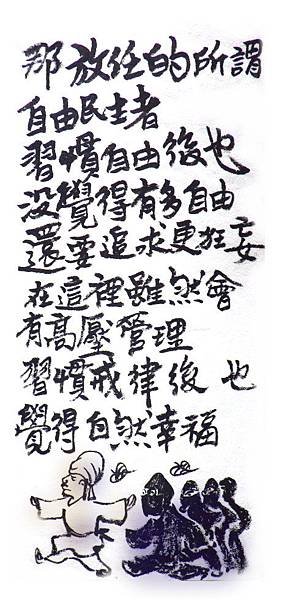 那放任的所謂
自由民主者
習慣自由後也
没覺得有多自由
還要追求更狂妄
在這裡雖然會
有高壓管理
習慣戒律後也
覺得自然幸福